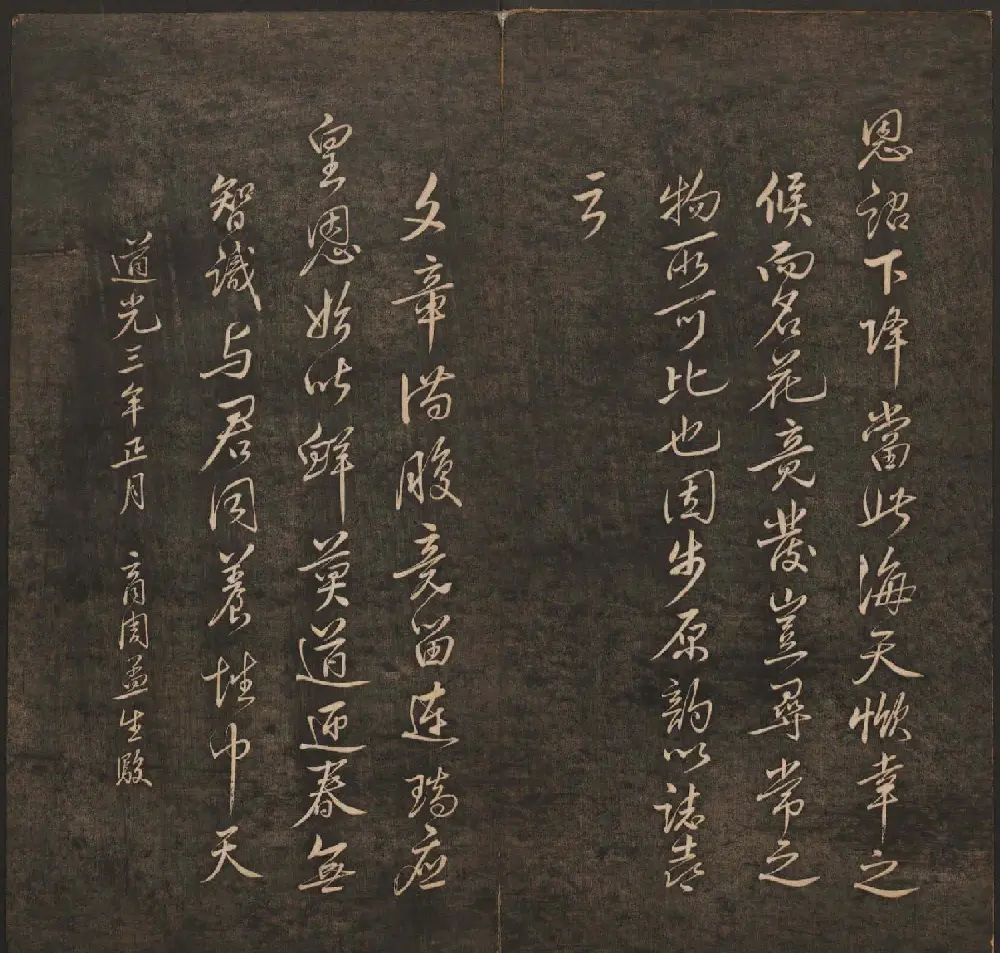 恩詔下降當此海天幸之
候而名花竟發豈尋常之
物所可比也因步原韵以誌喜
云
文章滿腹竟留連瑞應
皇恩始吐鮮莫道迎春無
智識与君同養性中天
道光三年正月 周益生